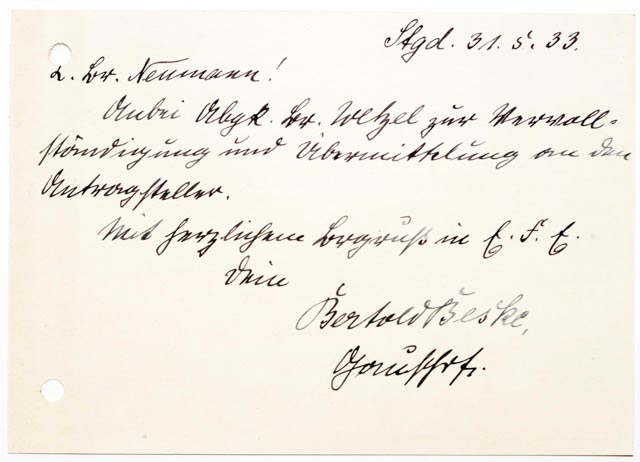 Stgd. 31.5.33.
L. Br. Neumann!
Anbei Abgk. Br. Wetzel zur Vervoll-
ständigung und Übermittelung an den
Antragsteller.
Mit herzlichem Brgruß in E. F. E.
Dein
Bertold Beske,